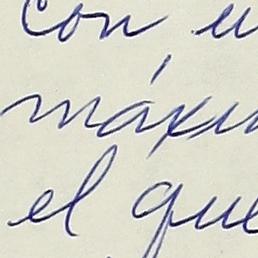 con u
máxim
el que